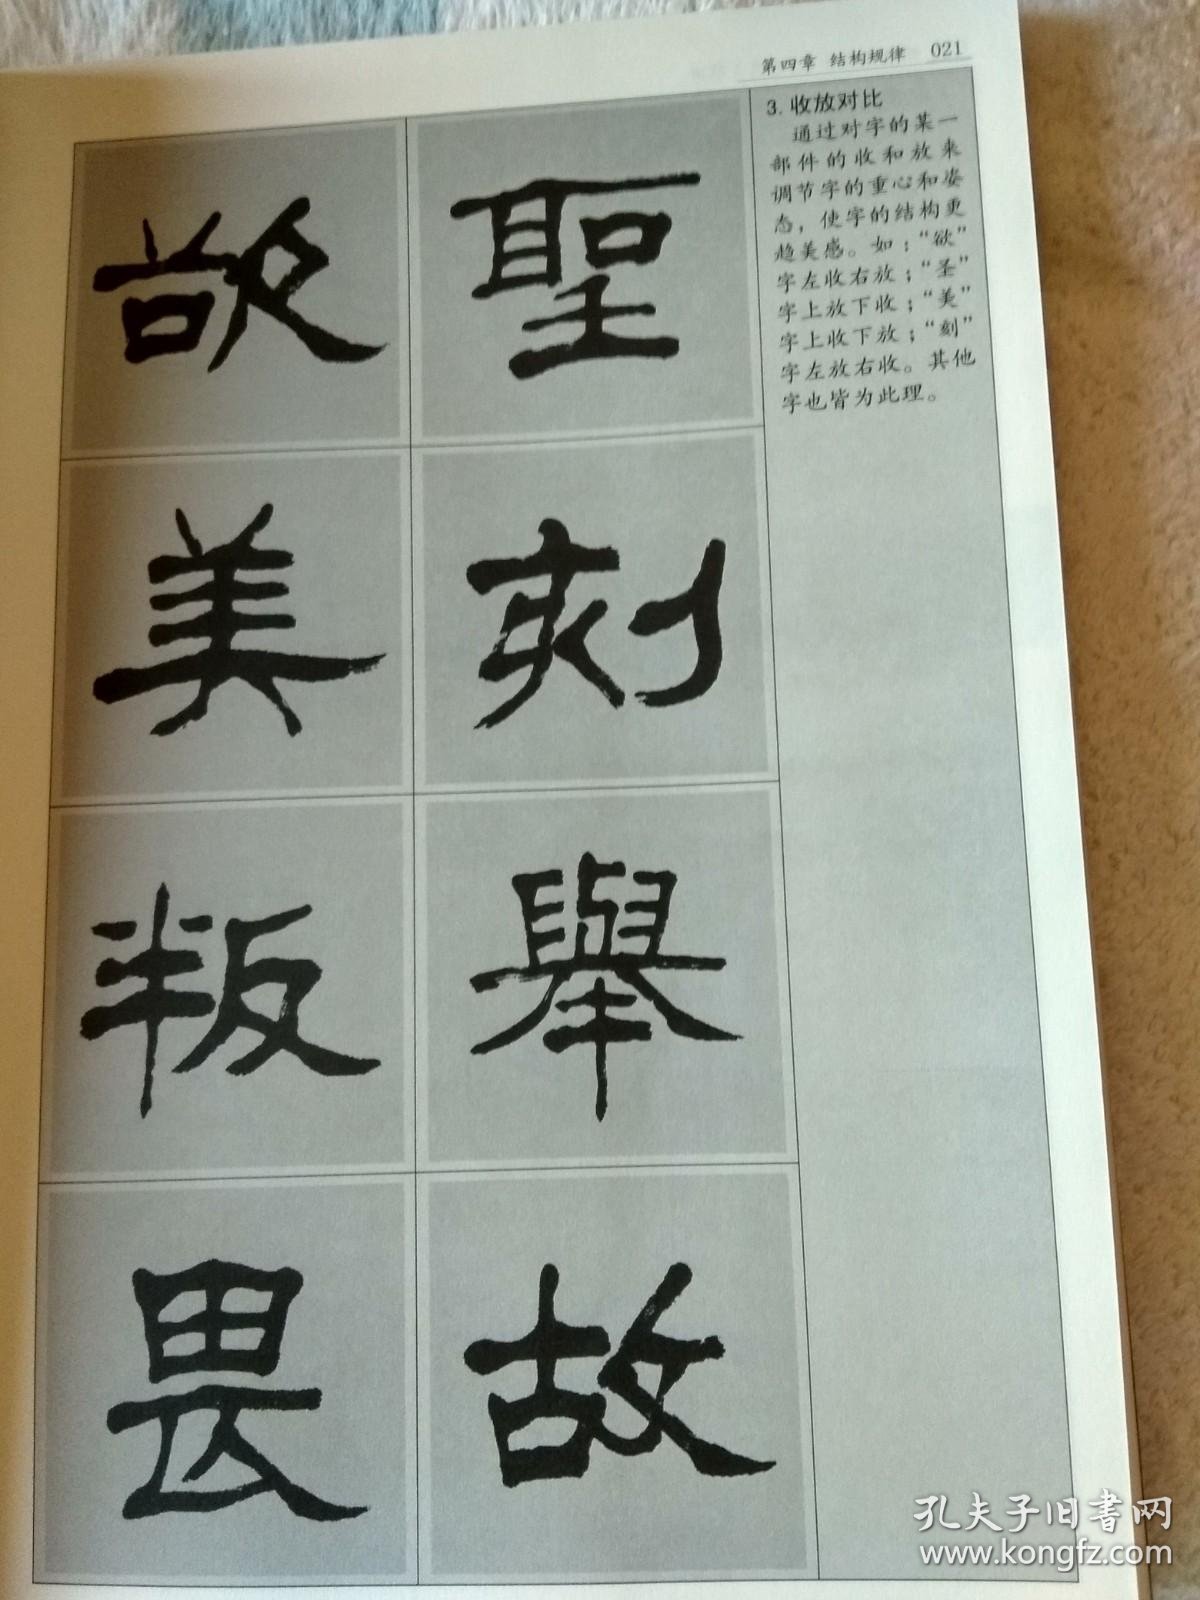 第四章 结构规律 021
3. 收放对比
通过对字的某一
部件的收和放来
调节字的重心和姿
态，使字的结构更
趋美感。如：“欲”
字左收右放；“圣”
字上放下收；“美”
字上收下放；“刻”
字左放右收。其他
字也皆为此理。
聖
刻
舉
故
欲
美
叛
畏
孔夫子旧书网
www.kongfz.com